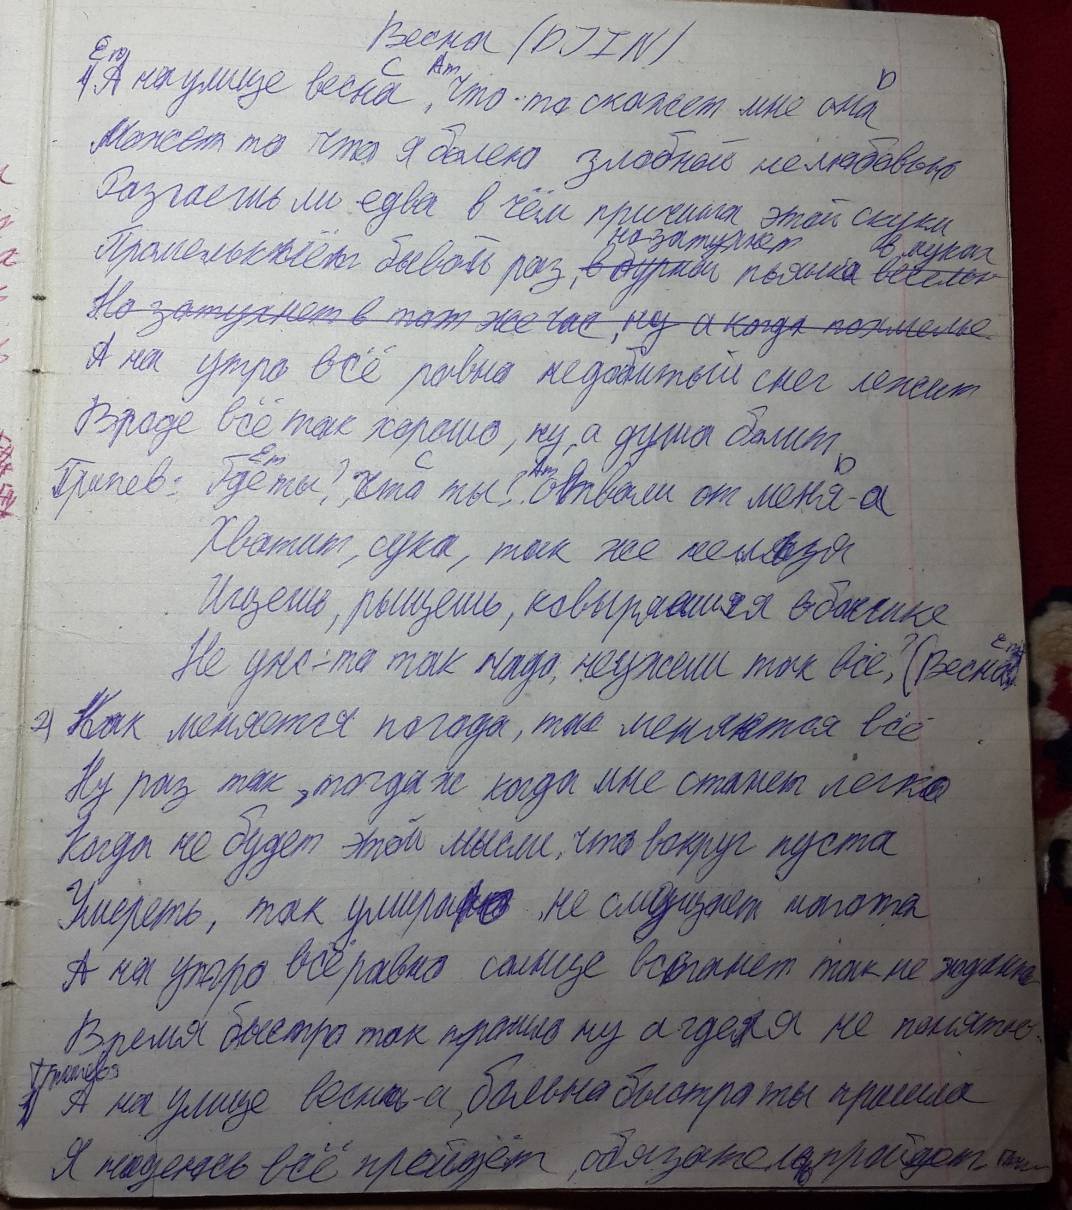 Весна (DJIN)
Em C Am D
1) А на улице весна, Что-то скажет мне она
Может то что я болею злобной нелюбовью
Разгаешь ли едва в чём причина этой скуки
но затухнет в муках
Промелькнёт бывой раз, в бурной пьянка веселье
Но затухнет в тот же час, ну а когда похмелье
А на утро всё равно недобитый снег лежит
Вроде всё так хорошо, ну, а душа болит
Em C Am D
Припев: Где ты? Что ты? Отвали от меня-а
Хватит, сука, так же нельзя
Ищешь, рыщешь, ковыряешься в бошке
Em
Не уж-то так надо, неужели так всё? (Весна)
2) Как меняется погода, так меняются всё
Ну раз так, тогда ж когда мне станет легко
Когда не будет этой мысли, что вокруг пуста
Умереть, так умираю не смущает нагота
А на утро всё равно солнце встанет так не жданно
Время быстро так прошло ну а где я не понятно
Припев
А на улице весна-а, больна быстра ты пришла
Я надеюсь всё пройдёт, обязательно пройдет